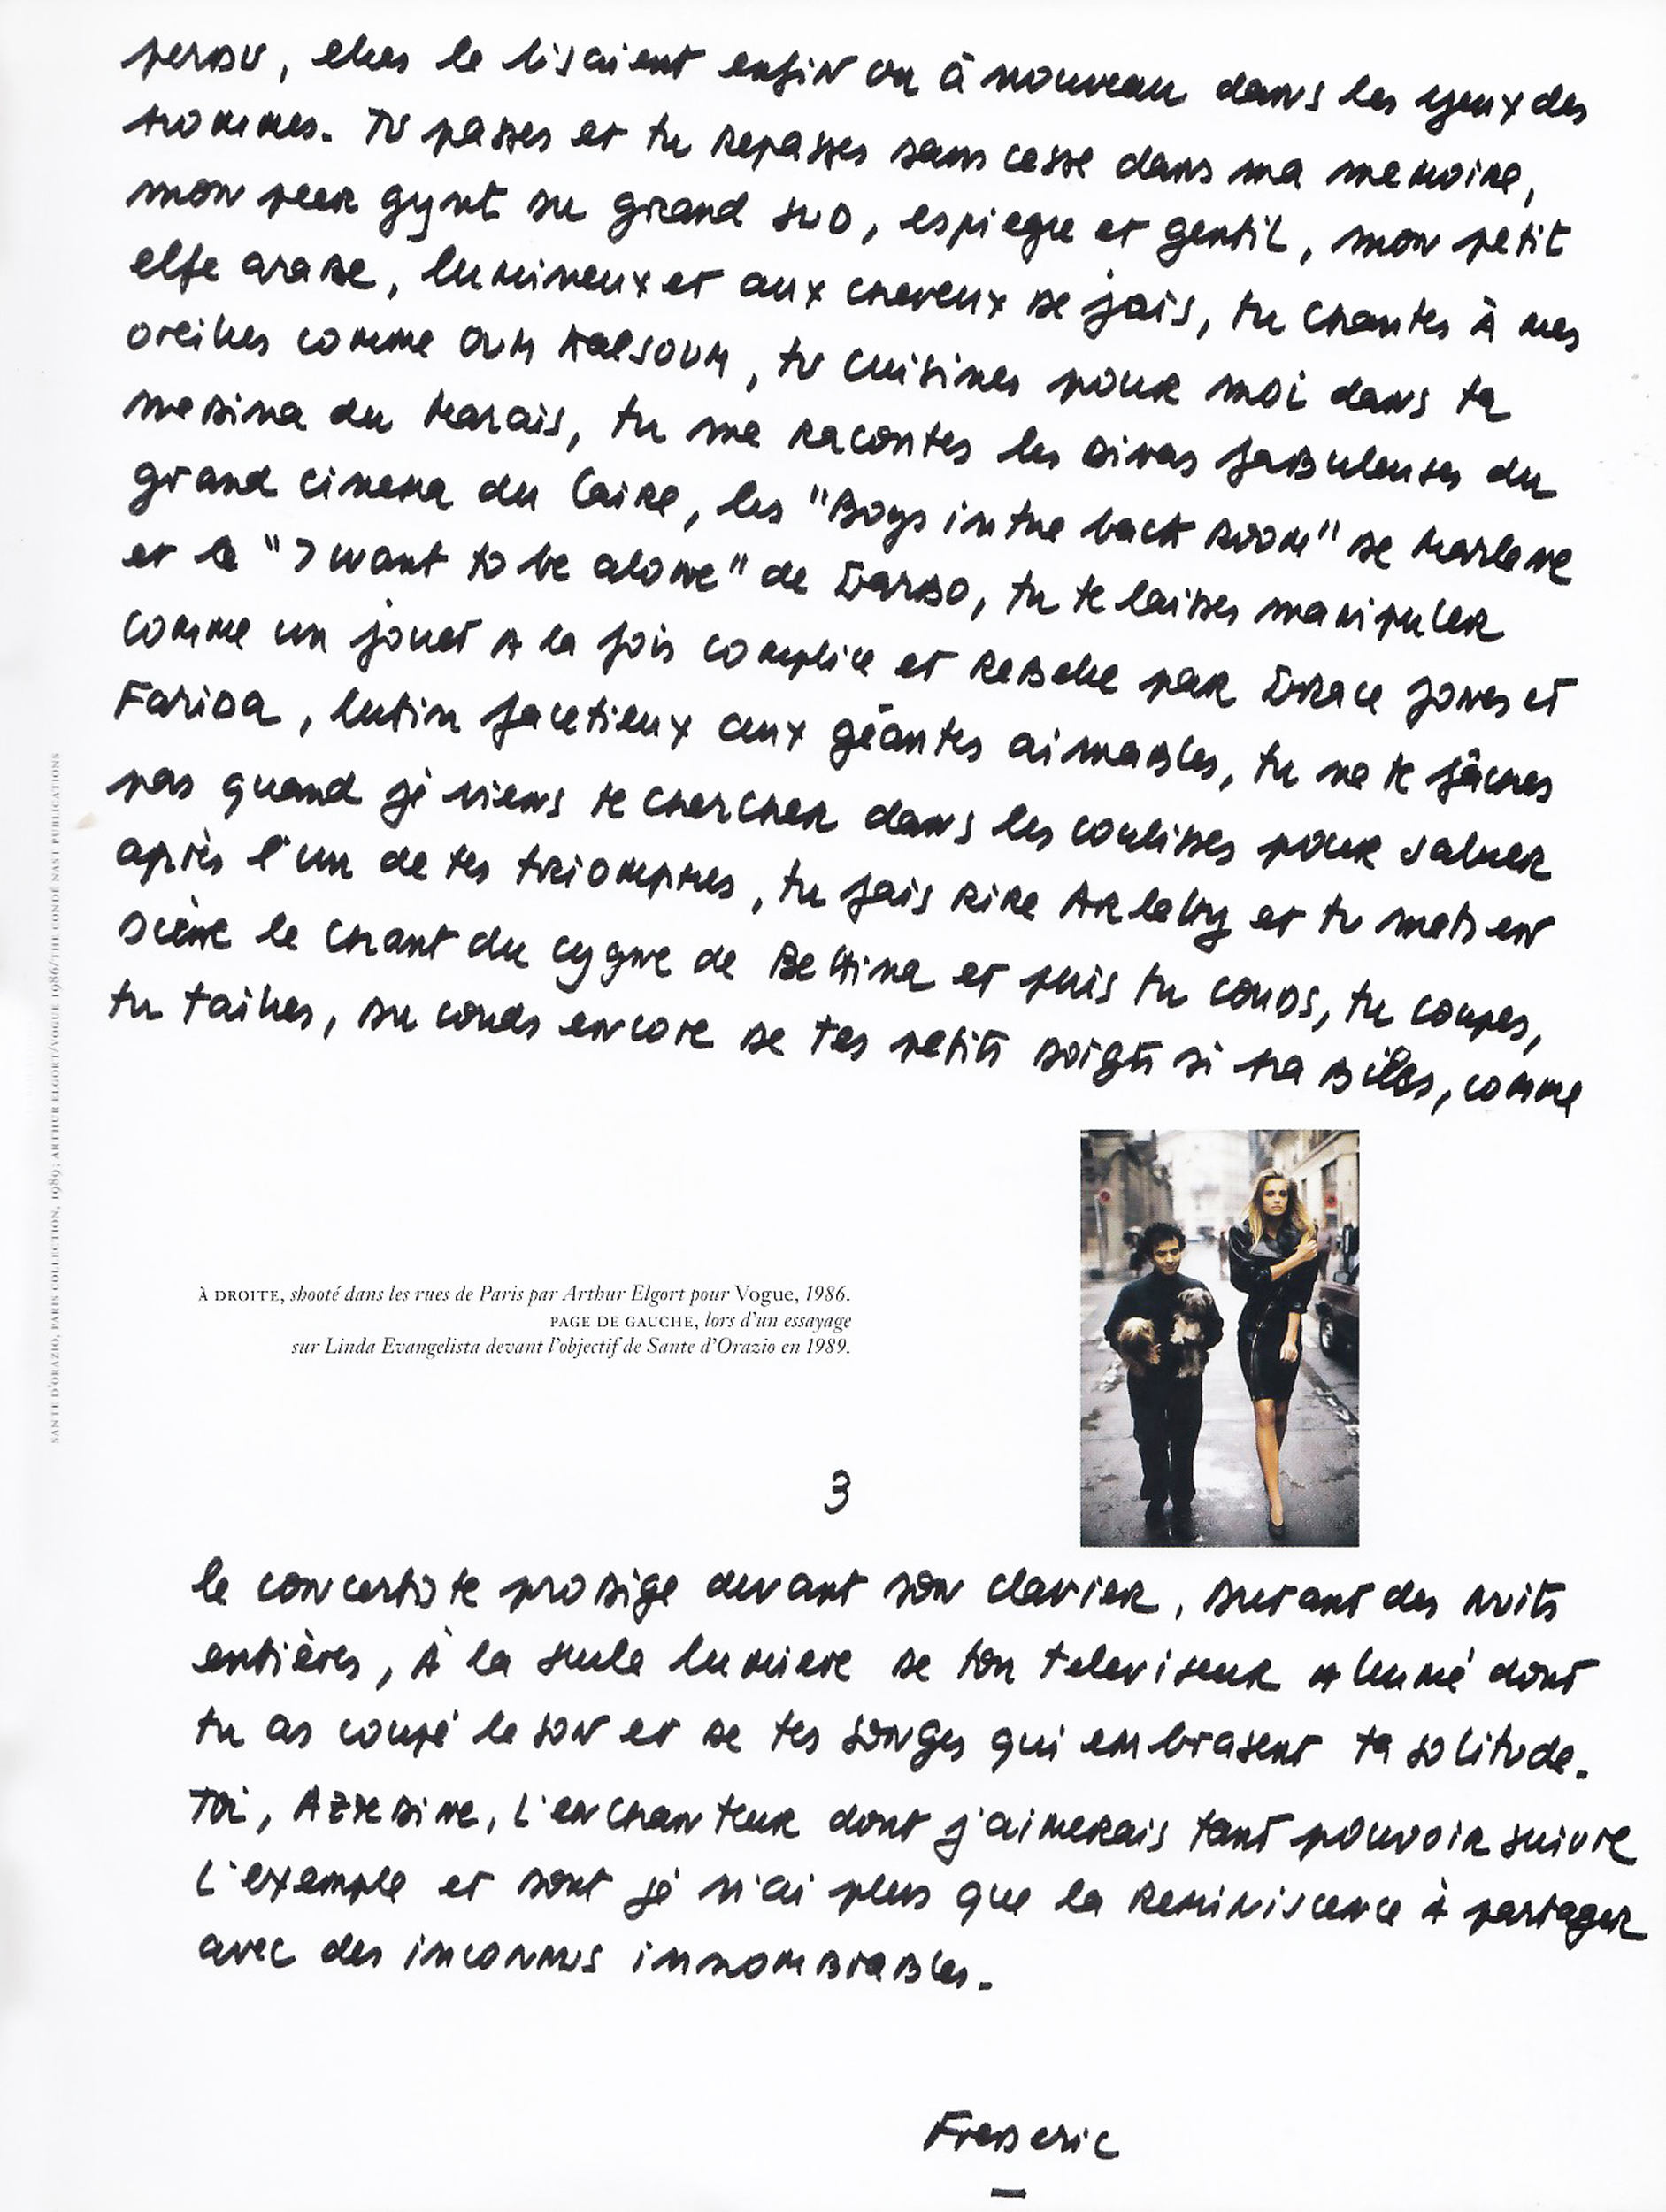 perdu, elles le lisaient enfin ou à nouveau dans les yeux des
hommes. Tu passes et tu repasses sans cesse dans ma memoire,
mon peer gynt du grand sud, espiegle et gentil, mon petit
elfe arabe, lumineux et aux cheveux de jais, tu chantes à mes
oreilles comme Oum Kalsoum, tu cuisines pour moi dans ta
medina du Marais, tu me racontes les divas fabuleuses du
grand cinema du Caire, les "Boys in the back room" de Marlene
et le "I want to be alone" de Garbo, tu te laisses manipuler
comme un jouet à la fois complice et rebelle par Grace Jones et
Farida, lutin facetieux aux géantes aimables, tu ne te fâches
pas quand je viens te chercher dans les coulisses pour saluer
après l'un de tes triomphes, tu fais rire Arletty et tu mets en
scène le chant du cygne de Bettina et puis tu couds, tu coupes,
tu tailles, du couds encore de tes petits doigts si habiles, comme
SANTE D'ORAZIO, PARIS COLLECTION, 1989; ARTHUR ELGORT/VOGUE 1986/THE CONDÉ NAST PUBLICATIONS
À DROITE, shooté dans les rues de Paris par Arthur Elgort pour Vogue, 1986.
PAGE DE GAUCHE, lors d'un essayage
sur Linda Evangelista devant l'objectif de Sante d'Orazio en 1989.
3
le concertiste prodige devant son clavier, durant des nuits
entières, à la seule lumiere de ton televiseur allumé dont
tu as coupé le son et de tes songes qui embrasent ta solitude.
Toi, Azzedine, l'enchanteur dont j'aimerais tant pouvoir suivre
l'exemple et dont je n'ai plus que la reminiscence à partager
avec des inconnus innombrables.
Frederic